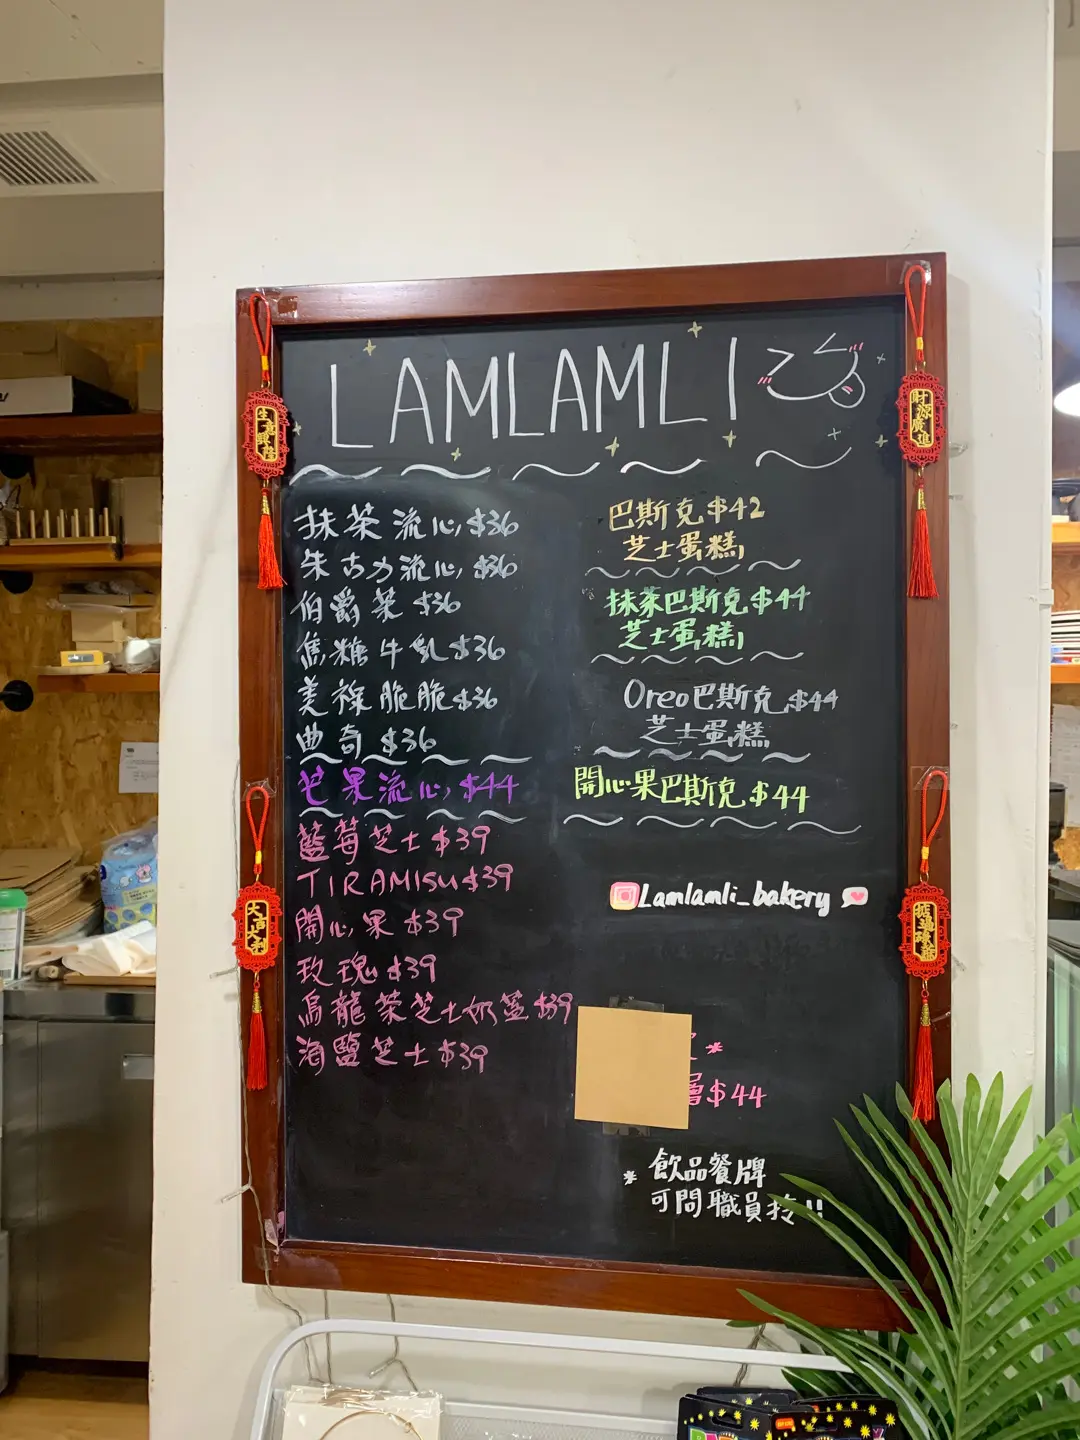 LAMLAMLI
抹茶流心 $36
朱古力流心 $36
伯爵茶 $36
焦糖牛乳 $36
美祿脆脆 $36
曲奇 $36
芒果流心 $44
藍莓芝士 $39
TIRAMISU $39
開心果 $39
玫瑰 $39
烏龍茶芝士奶蓋 $39
海鹽芝士 $39
巴斯克 $42
芝士蛋糕
抹茶巴斯克 $44
芝士蛋糕
Oreo巴斯克 $44
芝士蛋糕
開心果巴斯克 $44
Lamlamli_bakery
*
層 $44
* 飲品餐牌
可問職員拎!!
生意興隆
財源廣進
大吉大利